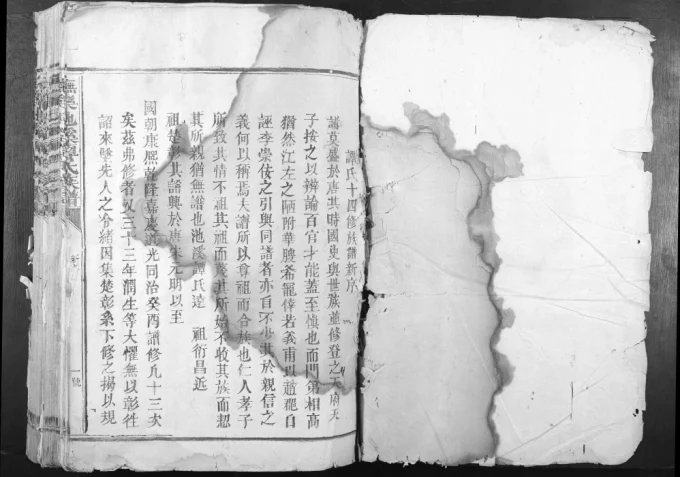 譚氏十四修族譜新序
譜莫盛於唐其時國史與世族並修登之天府天
子按之以辨論百官才能蓋至愼也而門第相高
猶然江左之陋附華腴希寵倖若義甫以趙穠自
誣李崇佐之引與同譜者亦自不少其於親信之
義何以稱焉夫譜所以尊祖而合族也仁人孝子
所致其情不祖其祖而忘其所始不收其族而恝
其所親猶無譜也池溪譚氏遠 祖衍昌近
祖楚彰其譜興於唐宋元明以至
國朝康熙乾隆嘉慶道光同治癸酉譜修凡十三次
矣茲弗修者又三十三年潤生等大懼無以彰往
詔來墜先人之令緒因集楚彰系下修之揚以規
序
一號
氏族譜